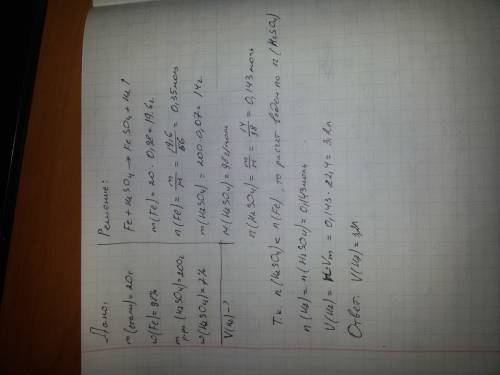 Дано:
m(стали)=20г
ω(Fe)=98%
m р-ра (H₂SO₄)=200г
ω(H₂SO₄)=7%
V(H₂)-?
Решение:
Fe + H₂SO₄ → FeSO₄ + H₂↑
m(Fe) = 20 · 0,98 = 19,6г
n(Fe) = m/M = 19,6/56 = 0,35моль
m(H₂SO₄) = 200 · 0,07 = 14г
M(H₂SO₄) = 98г/моль
n(H₂SO₄) = m/M = 14/98 = 0,143моль
Т.к. n(H₂SO₄) < n(Fe), то расчет ведем по n(H₂SO₄)
n(H₂) = n(H₂SO₄) = 0,143моль
V(H₂) = n·Vm = 0,143 · 22,4 = 3,2л
Ответ: V(H₂) = 3,2л